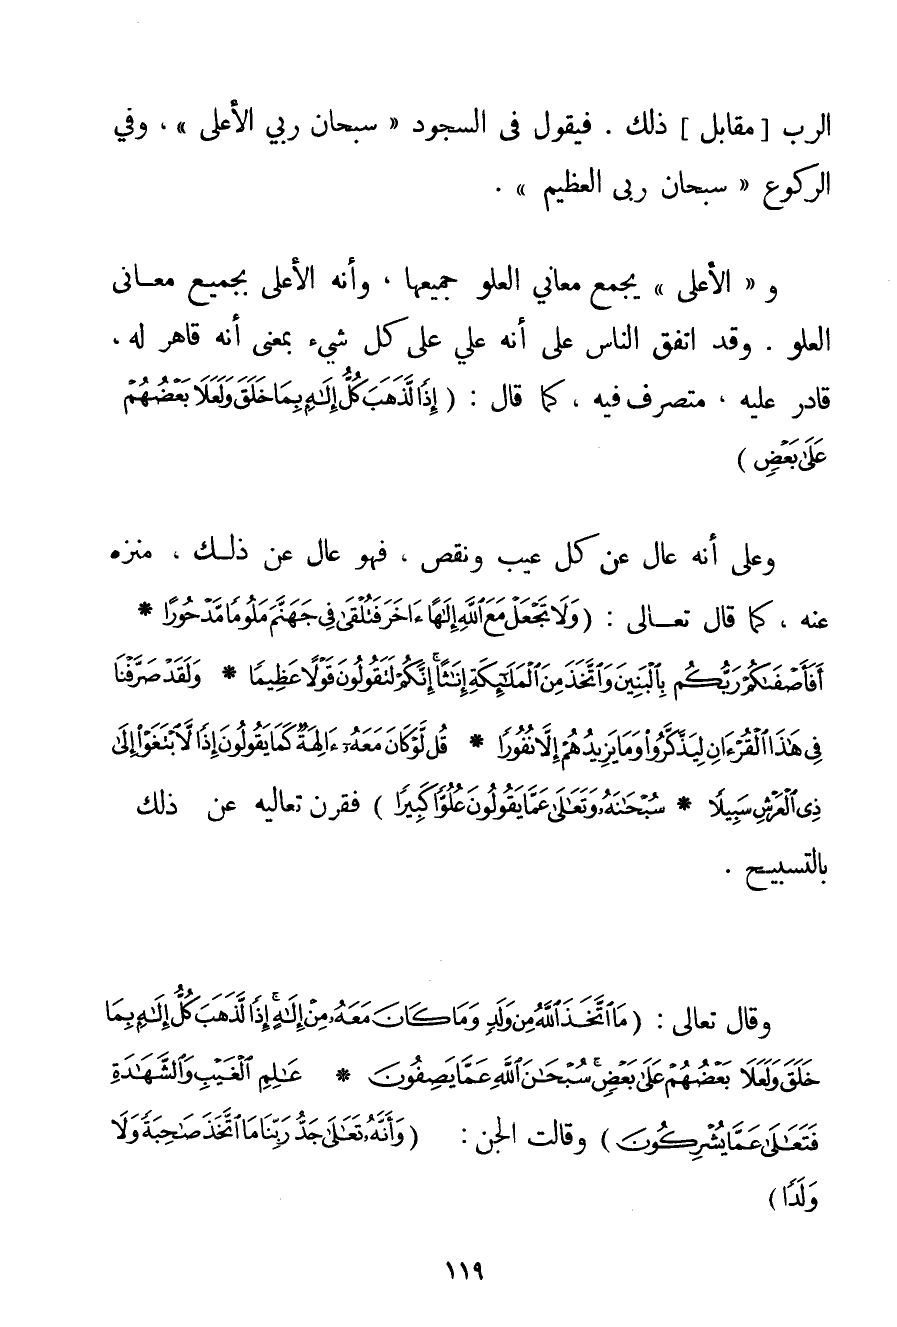 الرب [ مقابل ] ذلك . فيقول فى السجود « سبحان ربي الأعلى » ، وفي
الركوع « سبحان ربى العظيم » .
و « الأعلى » يجمع معاني العلو جميعها ، وأنه الأعلى بجميع معانى
العلو . وقد اتفق الناس على أنه علي على كل شيء بمعنى أنه قاهر له ،
قادر عليه ، متصرف فيه ، كما قال : ( إِذًا لَّذَهَبَ كُلُّ إِلَٰهٍ بِمَا خَلَقَ وَلَعَلَا بَعْضُهُمْ
عَلَىٰ بَعْضٍ )
وعلى أنه عال عن كل عيب ونقص ، فهو عال عن ذلك ، منزه
عنه ، كما قال تعالى : ( وَلَا تَجْعَلْ مَعَ اللَّهِ إِلَٰهًا ءَاخَرَ فَتُلْقَىٰ فِي جَهَنَّمَ مَلُومًا مَّدْحُورًا *
أَفَأَصْفَىٰكُمْ رَبُّكُم بِالْبَنِينَ وَاتَّخَذَ مِنَ الْمَلَٰٓئِكَةِ إِنَٰثًا ۚ إِنَّكُمْ لَتَقُولُونَ قَوْلًا عَظِيمًا * وَلَقَدْ صَرَّفْنَا
فِي هَٰذَا الْقُرْءَانِ لِيَذَّكَّرُوا۟ وَمَا يَزِيدُهُمْ إِلَّا نُفُورًا * قُل لَّوْ كَانَ مَعَهُۥٓ ءَالِهَةٌ كَمَا يَقُولُونَ إِذًا لَّابْتَغَوْا۟ إِلَىٰ
ذِي الْعَرْشِ سَبِيلًا * سُبْحَٰنَهُۥ وَتَعَٰلَىٰ عَمَّا يَقُولُونَ عُلُوًّا كَبِيرًا ) فقرن تعاليه عن ذلك
بالتسبيح .
وقال تعالى : ( مَا اتَّخَذَ اللَّهُ مِن وَلَدٍ وَمَا كَانَ مَعَهُۥ مِنْ إِلَٰهٍ ۚ إِذًا لَّذَهَبَ كُلُّ إِلَٰهٍ بِمَا
خَلَقَ وَلَعَلَا بَعْضُهُمْ عَلَىٰ بَعْضٍ ۚ سُبْحَٰنَ اللَّهِ عَمَّا يَصِفُونَ * عَٰلِمِ الْغَيْبِ وَالشَّهَٰدَةِ
فَتَعَٰلَىٰ عَمَّا يُشْرِكُونَ ) وقالت الجن : ( وَأَنَّهُۥ تَعَٰلَىٰ جَدُّ رَبِّنَا مَا اتَّخَذَ صَٰحِبَةً وَلَا
وَلَدًا )
١١٩